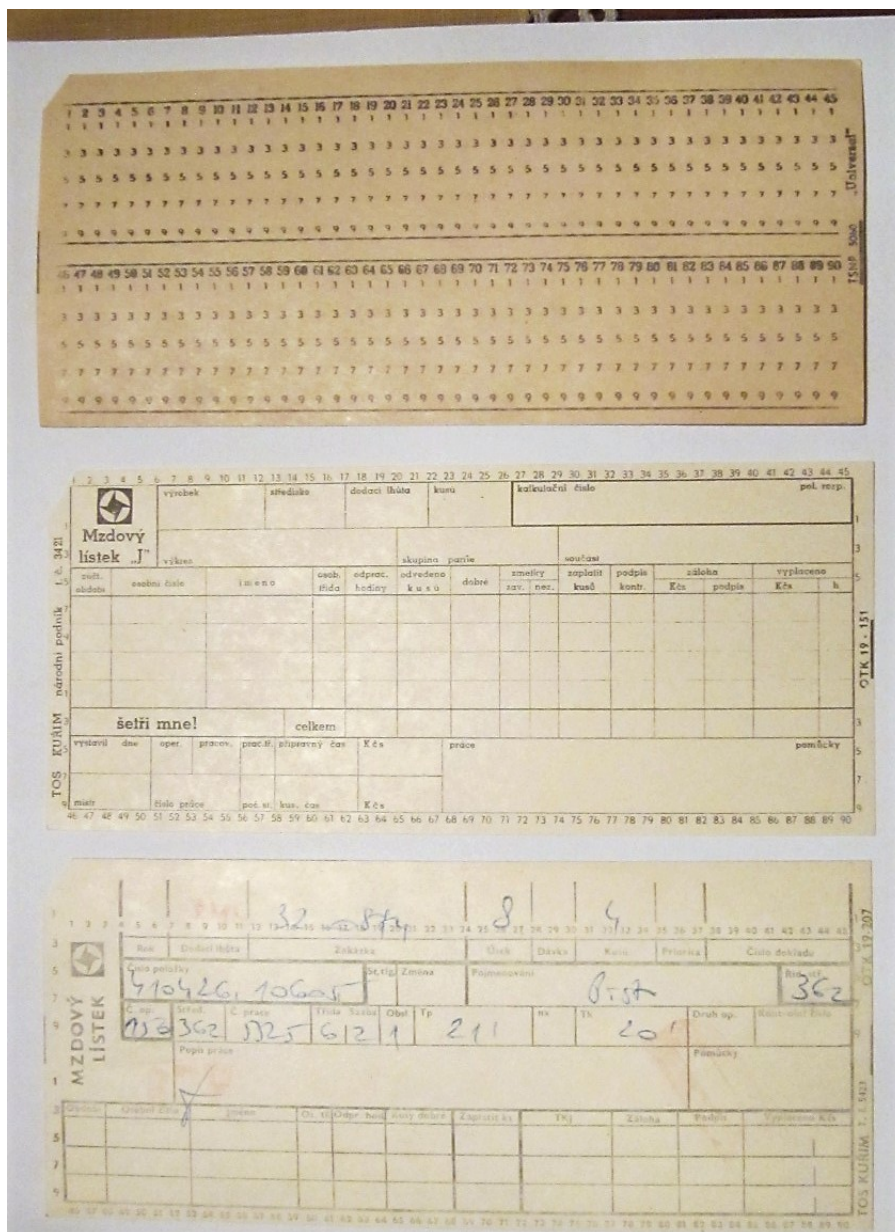 1 2 3 4 5 6 7 8 9 10 11 12 13 14 15 16 17 18 19 20 21 22 23 24 25 26 27 28 29 30 31 32 33 34 35 36 37 38 39 40 41 42 43 44 45
1 1 1 1 1 1 1 1 1 1 1 1 1 1 1 1 1 1 1 1 1 1 1 1 1 1 1 1 1 1 1 1 1 1 1 1 1 1 1 1 1 1 1 1 1
3 3 3 3 3 3 3 3 3 3 3 3 3 3 3 3 3 3 3 3 3 3 3 3 3 3 3 3 3 3 3 3 3 3 3 3 3 3 3 3 3 3 3 3 3
5 5 5 5 5 5 5 5 5 5 5 5 5 5 5 5 5 5 5 5 5 5 5 5 5 5 5 5 5 5 5 5 5 5 5 5 5 5 5 5 5 5 5 5 5
7 7 7 7 7 7 7 7 7 7 7 7 7 7 7 7 7 7 7 7 7 7 7 7 7 7 7 7 7 7 7 7 7 7 7 7 7 7 7 7 7 7 7 7 7
9 9 9 9 9 9 9 9 9 9 9 9 9 9 9 9 9 9 9 9 9 9 9 9 9 9 9 9 9 9 9 9 9 9 9 9 9 9 9 9 9 9 9 9 9
46 47 48 49 50 51 52 53 54 55 56 57 58 59 60 61 62 63 64 65 66 67 68 69 70 71 72 73 74 75 76 77 78 79 80 81 82 83 84 85 86 87 88 89 90
1 1 1 1 1 1 1 1 1 1 1 1 1 1 1 1 1 1 1 1 1 1 1 1 1 1 1 1 1 1 1 1 1 1 1 1 1 1 1 1 1 1 1 1 1
3 3 3 3 3 3 3 3 3 3 3 3 3 3 3 3 3 3 3 3 3 3 3 3 3 3 3 3 3 3 3 3 3 3 3 3 3 3 3 3 3 3 3 3 3
5 5 5 5 5 5 5 5 5 5 5 5 5 5 5 5 5 5 5 5 5 5 5 5 5 5 5 5 5 5 5 5 5 5 5 5 5 5 5 5 5 5 5 5 5
7 7 7 7 7 7 7 7 7 7 7 7 7 7 7 7 7 7 7 7 7 7 7 7 7 7 7 7 7 7 7 7 7 7 7 7 7 7 7 7 7 7 7 7 7
9 9 9 9 9 9 9 9 9 9 9 9 9 9 9 9 9 9 9 9 9 9 9 9 9 9 9 9 9 9 9 9 9 9 9 9 9 9 9 9 9 9 9 9 9
TSNP 5060 „Universal"
1 2 3 4 5 6 7 8 9 10 11 12 13 14 15 16 17 18 19 20 21 22 23 24 25 26 27 28 29 30 31 32 33 34 35 36 37 38 39 40 41 42 43 44 45
výrobek středisko dodací lhůta kusů kalkulační číslo pol. rozp.
Mzdový
lístek „J"
výkres skupina součást
zúčt. období osobní číslo jméno osob. třída odprac. hodiny odvedeno kusů dobré zmetky zav. nez. zaplatit kusů podpis kontr. záloha Kčs podpis vyplaceno Kčs h
šetři mne! celkem
vystavil dne oper. pracov. prac.tř. přípravný čas Kčs práce pomůcky
mistr číslo práce poč. st. kus. čas Kčs
46 47 48 49 50 51 52 53 54 55 56 57 58 59 60 61 62 63 64 65 66 67 68 69 70 71 72 73 74 75 76 77 78 79 80 81 82 83 84 85 86 87 88 89 90
TOS KUŘIM národní podnik t. č. 3421
OTK 19 - 151
32 8 4
Rok Dodací lhůta Zakázka Úsek Dávka Kusů Priorita Číslo dokladu
Číslo položky Změna Pojmenování
410426, 10605 Prst 362
Č. op. Střed. Č. pracov. Třída Sazba Obsl. Tp Tk Druh op.
362 6 2 1 21' 20'
Popis práce Pomůcky
MZDOVÝ
LÍSTEK
Období Osobní číslo Jméno Os. tř. Odpr. hod. Kusy dobré Zaplatit ks TKj Záloha Podpis Vyplaceno Kčs
OTK 19-207
TOS KUŘIM